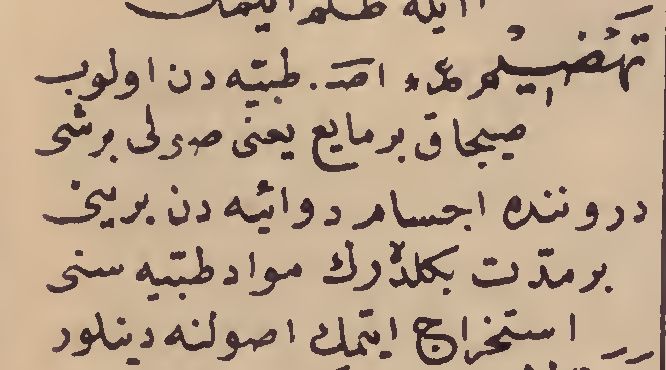 ايله ظلم ايتمك
تهضيم صد٠ اصـ. طبيّه دن اولوب
صيجاق بر مايع يعنى صولى بر شى
دروننده اجسام دوائيه دن بريني
بر مدّت بكلدرك مواد طبّيه سنى
استخراج ايتمك اصولنه دينلور